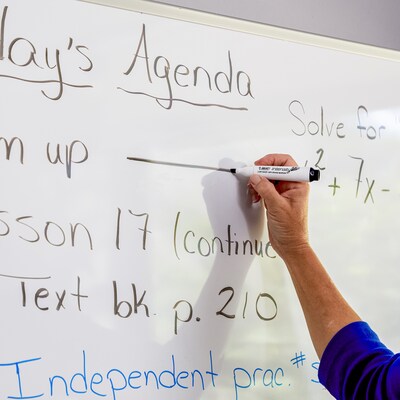 lay's Agenda
m up
sson 17 (continue
Text bk. p. 210
Independent prac. #
Solve for
² + 7x -